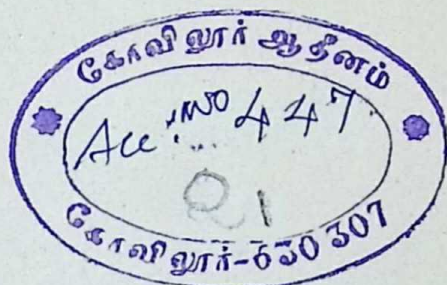 கோவிலூர் ஆதீனம்
Acc. No 447
கோவிலூர்-630307